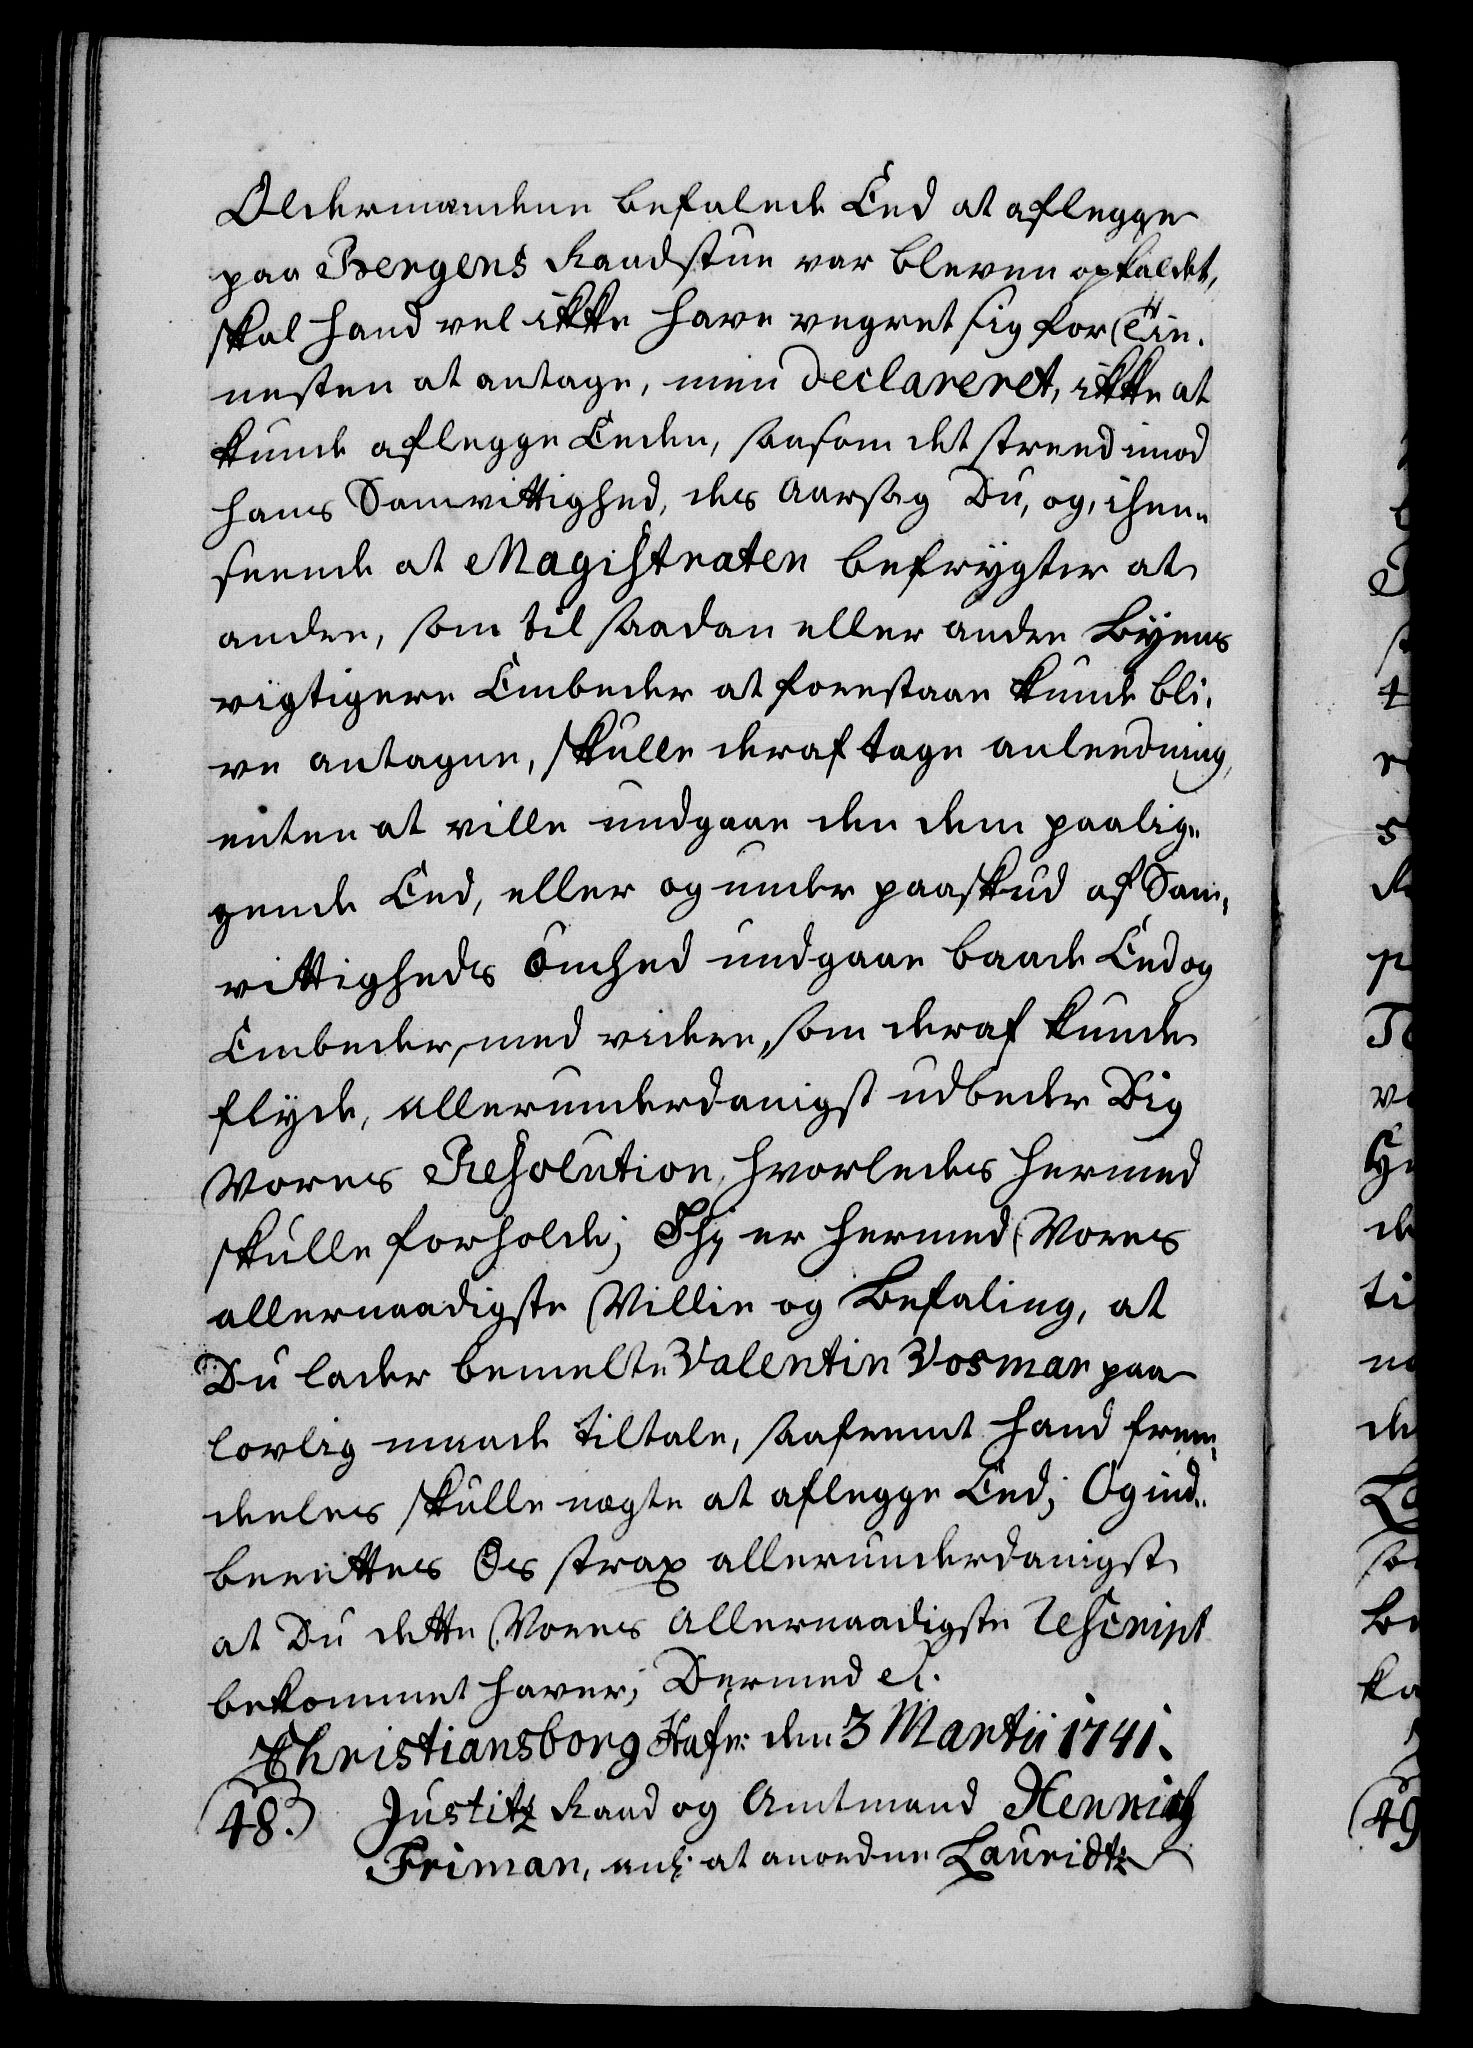 Oldermændene befalede Eed at aflegge
paa Bergens Raadstue var bleven opkaldet,
skal hand vel ikke have vegret sig for Tie-
nesten at antage, men declareret, ikke at
kunde aflegge Eeden, saasom det streed imod
hans Samvittighed, des Aarsag Du, og, i hen-
seende at Magistraten befrygter at
andre, som til saadan eller andre Byens
vigtigere Embeder at forestaae kunde bli-
ve antagne, skulle deraf tage anleedning,
enten at ville undgaae den dem paalig-
gende Eed, eller og under paaskud af Sam-
vittigheds Ømhed undgaae baade Eed og
Embeder, med videre, som deraf kunde
flyde, allerunderdanigst udbeder Dig
Vores Resolution, hvorledes hermed
skulle forholde; Thi er hermed Vores
allernaadigste Villie og Befaling, at
Du lader bemelte Valentin Vosman paa
lovlig maade tiltale, saafremt hand frem-
deeles skulle nægte at aflegge Eed; Og ind-
berettes Os strax allerunderdanigst
at Du dette Vores Allernaadigste Rescript
bekommet haver; Dermed etc.
Christiansborg Hafn: den 3 Martii 1741.
48.) Justitz Raad og Amtmand Henrich
Friman, anl: at anordne Lauridtz